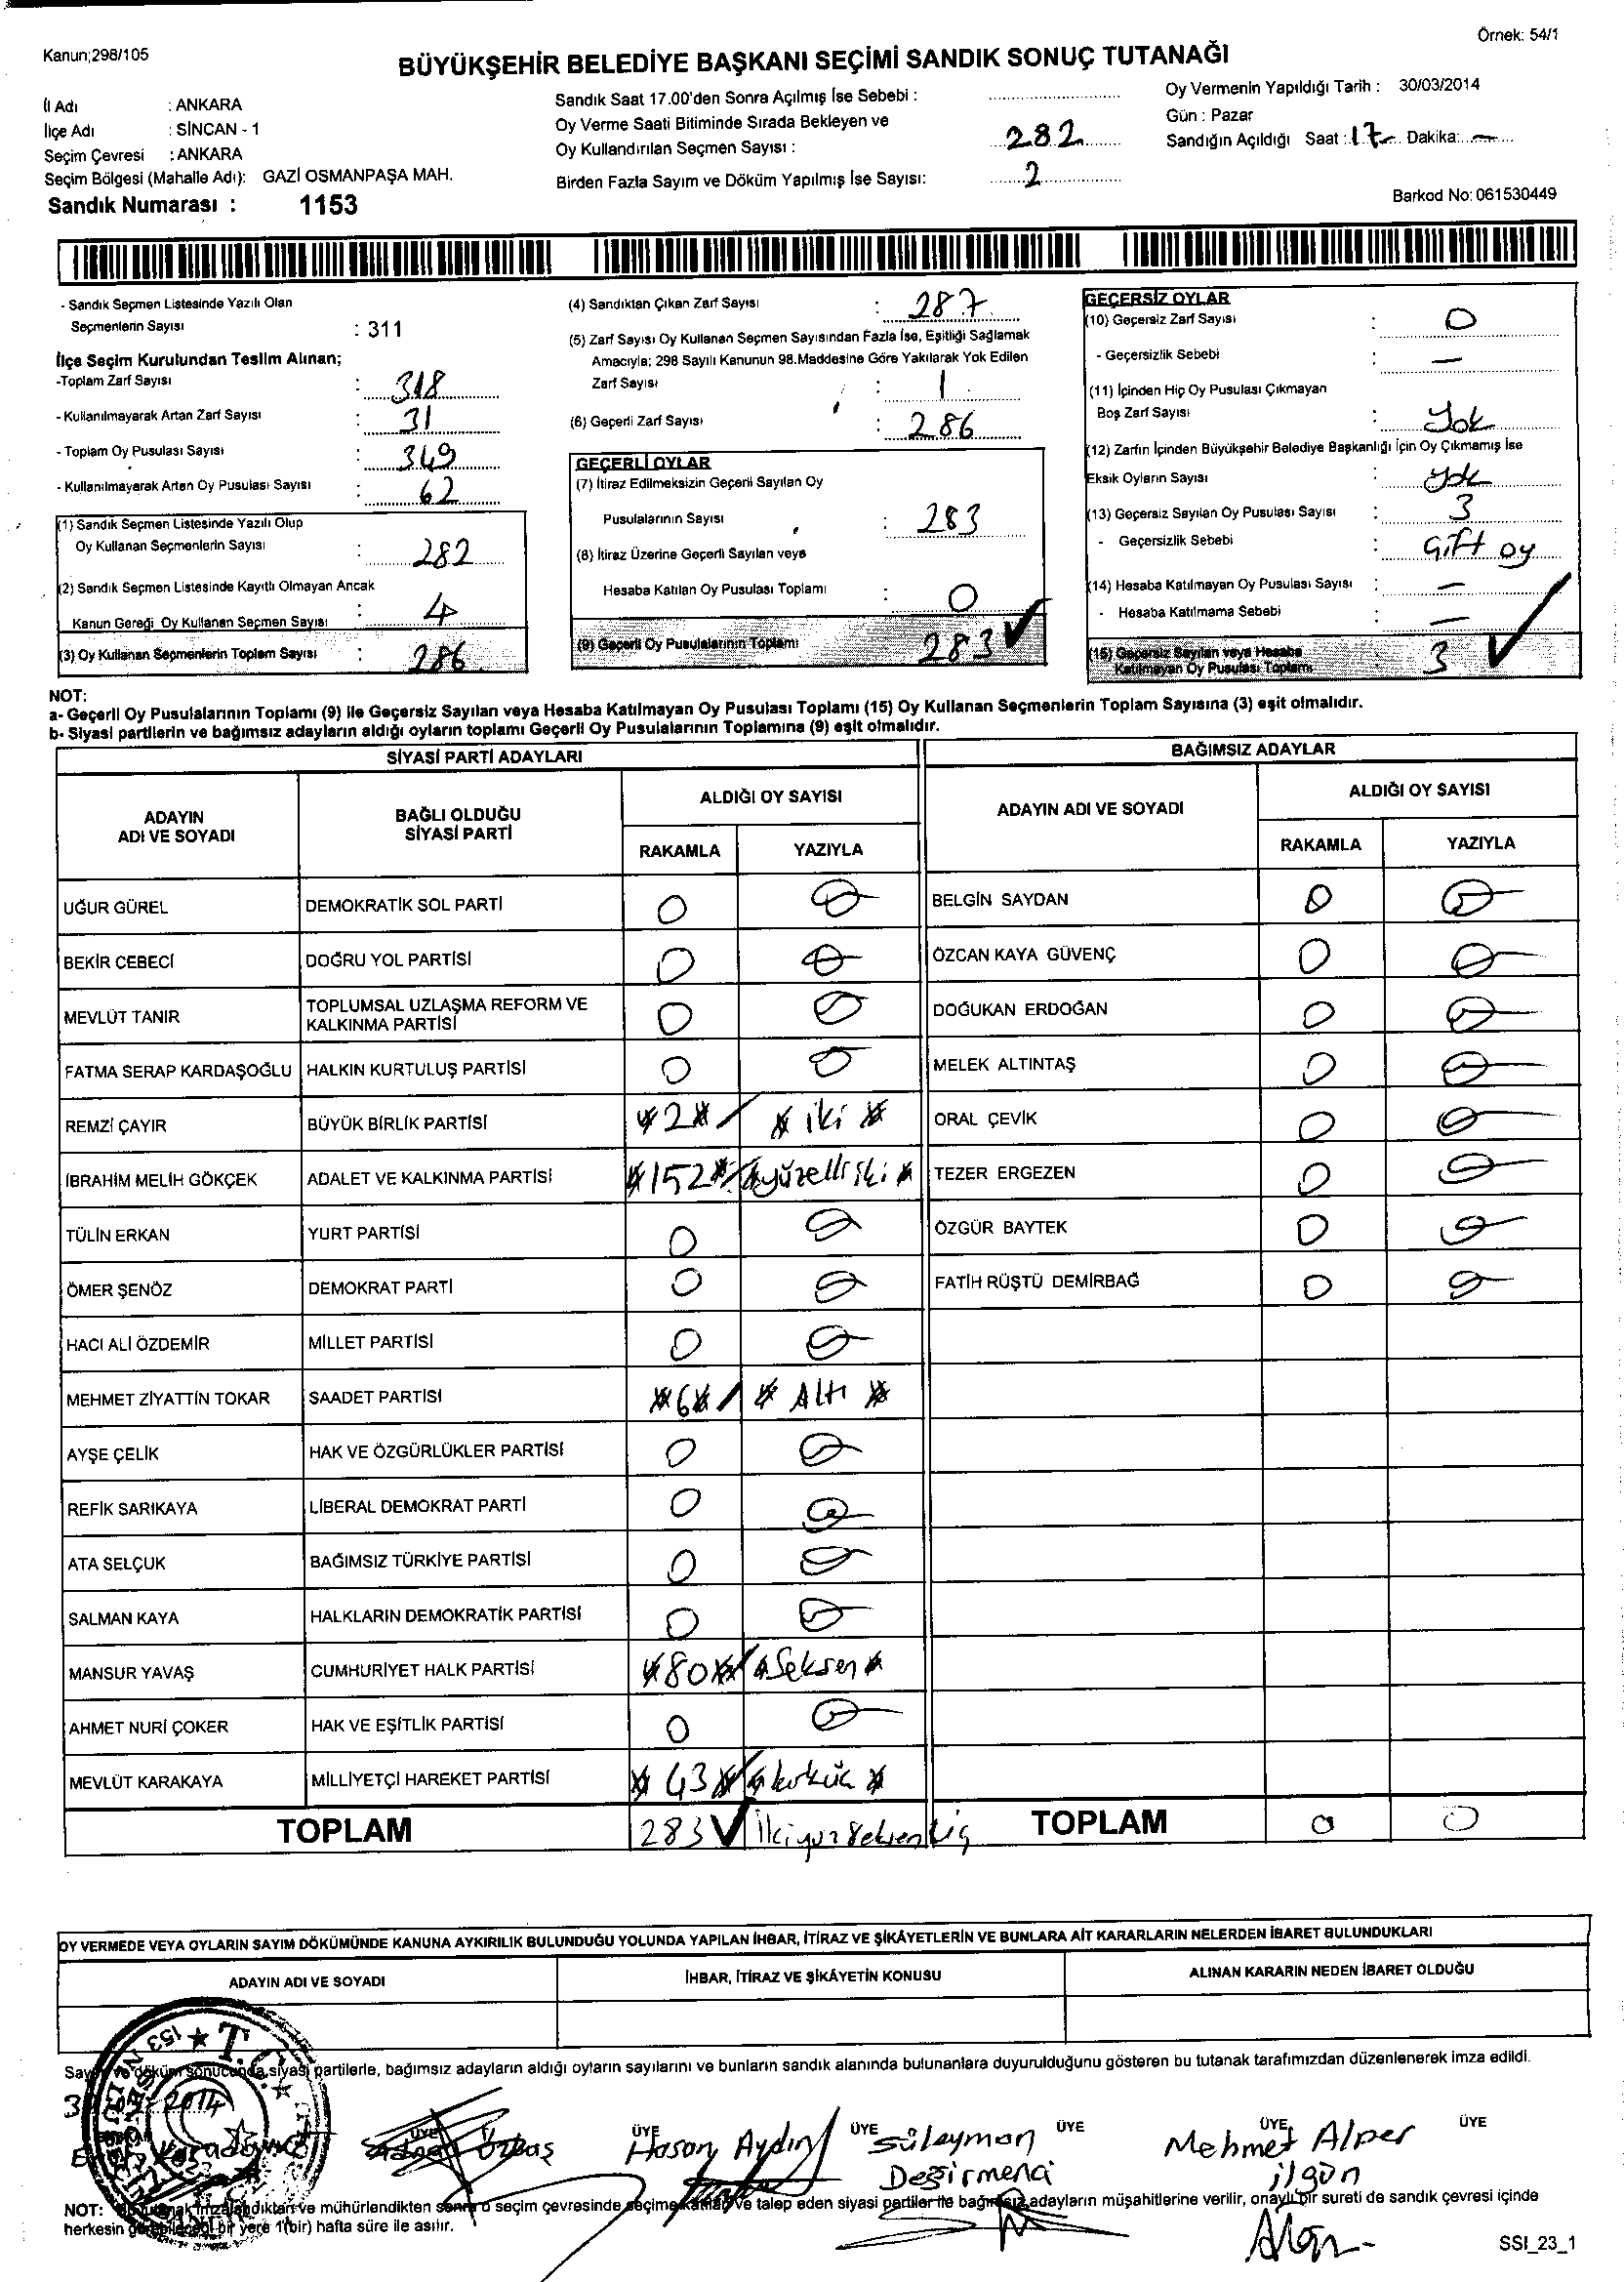 Örnek: 54/1
Kanun;298/105
BÜYÜKŞEHİR BELEDİYE BAŞKANI SEÇİMİ SANDIK SONUÇ TUTANAĞI
İl Adı : ANKARA
İlçe Adı : SİNCAN - 1
Seçim Çevresi : ANKARA
Seçim Bölgesi (Mahalle Adı): GAZİ OSMANPAŞA MAH.
Sandık Numarası : 1153
Sandık Saat 17.00'den Sonra Açılmış İse Sebebi :
Oy Verme Saati Bitiminde Sırada Bekleyen ve
Oy Kullandırılan Seçmen Sayısı : 282
Birden Fazla Sayım ve Döküm Yapılmış İse Sayısı: 2
Oy Vermenin Yapıldığı Tarih : 30/03/2014
Gün : Pazar
Sandığın Açıldığı Saat : 17 Dakika: —
Barkod No: 061530449
- Sandık Seçmen Listesinde Yazılı Olan
Seçmenlerin Sayısı : 311
İlçe Seçim Kurulundan Teslim Alınan;
-Toplam Zarf Sayısı : 318
- Kullanılmayarak Artan Zarf Sayısı : 31
- Toplam Oy Pusulası Sayısı : 349
- Kullanılmayarak Artan Oy Pusulası Sayısı : 62
(1) Sandık Seçmen Listesinde Yazılı Olup
Oy Kullanan Seçmenlerin Sayısı : 282
(2) Sandık Seçmen Listesinde Kayıtlı Olmayan Ancak
Kanun Gereği Oy Kullanan Seçmen Sayısı : 4
(3) Oy Kullanan Seçmenlerin Toplam Sayısı : 286
(4) Sandıktan Çıkan Zarf Sayısı : 287
(5) Zarf Sayısı Oy Kullanan Seçmen Sayısından Fazla İse, Eşitliği Sağlamak
Amacıyla; 298 Sayılı Kanunun 98.Maddesine Göre Yakılarak Yok Edilen
Zarf Sayısı : 1
(6) Geçerli Zarf Sayısı : 286
GEÇERLİ OYLAR
(7) İtiraz Edilmeksizin Geçerli Sayılan Oy
Pusulalarının Sayısı : 283
(8) İtiraz Üzerine Geçerli Sayılan veya
Hesaba Katılan Oy Pusulası Toplamı : 0
(9) Geçerli Oy Pusulalarının Toplamı 283 ✓
GEÇERSİZ OYLAR
(10) Geçersiz Zarf Sayısı : 0
- Geçersizlik Sebebi : —
(11) İçinden Hiç Oy Pusulası Çıkmayan
Boş Zarf Sayısı : Yok
(12) Zarfın İçinden Büyükşehir Belediye Başkanlığı İçin Oy Çıkmamış İse
Eksik Oyların Sayısı : Yok
(13) Geçersiz Sayılan Oy Pusulası Sayısı : 3
- Geçersizlik Sebebi : Çift oy
(14) Hesaba Katılmayan Oy Pusulası Sayısı : —
- Hesaba Katılmama Sebebi : —
(15) Geçersiz Sayılan veya Hesaba
Katılmayan Oy Pusulası Toplamı 3 ✓
NOT:
a- Geçerli Oy Pusulalarının Toplamı (9) ile Geçersiz Sayılan veya Hesaba Katılmayan Oy Pusulası Toplamı (15) Oy Kullanan Seçmenlerin Toplam Sayısına (3) eşit olmalıdır.
b- Siyasi partilerin ve bağımsız adayların aldığı oyların toplamı Geçerli Oy Pusulalarının Toplamına (9) eşit olmalıdır.
SİYASİ PARTİ ADAYLARI
ADAYIN ADI VE SOYADI
BAĞLI OLDUĞU SİYASİ PARTİ
ALDIĞI OY SAYISI
RAKAMLA YAZIYLA
UĞUR GÜREL DEMOKRATİK SOL PARTİ 0
BEKİR CEBECİ DOĞRU YOL PARTİSİ 0
MEVLÜT TANIR TOPLUMSAL UZLAŞMA REFORM VE KALKINMA PARTİSİ 0
FATMA SERAP KARDAŞOĞLU HALKIN KURTULUŞ PARTİSİ 0
REMZİ ÇAYIR BÜYÜK BİRLİK PARTİSİ 2 iki
İBRAHİM MELİH GÖKÇEK ADALET VE KALKINMA PARTİSİ 152 yüzelli iki
TÜLİN ERKAN YURT PARTİSİ 0
ÖMER ŞENÖZ DEMOKRAT PARTİ 0
HACI ALİ ÖZDEMİR MİLLET PARTİSİ 0
MEHMET ZİYATTİN TOKAR SAADET PARTİSİ 6 Altı
AYŞE ÇELİK HAK VE ÖZGÜRLÜKLER PARTİSİ 0
REFİK SARIKAYA LİBERAL DEMOKRAT PARTİ 0
ATA SELÇUK BAĞIMSIZ TÜRKİYE PARTİSİ 0
SALMAN KAYA HALKLARIN DEMOKRATİK PARTİSİ 0
MANSUR YAVAŞ CUMHURİYET HALK PARTİSİ 80 Seksen
AHMET NURİ ÇOKER HAK VE EŞİTLİK PARTİSİ 0
MEVLÜT KARAKAYA MİLLİYETÇİ HAREKET PARTİSİ 43
TOPLAM 283 ✓
BAĞIMSIZ ADAYLAR
ADAYIN ADI VE SOYADI
ALDIĞI OY SAYISI
RAKAMLA YAZIYLA
BELGİN SAYDAN 0
ÖZCAN KAYA GÜVENÇ 0
DOĞUKAN ERDOĞAN 0
MELEK ALTINTAŞ 0
ORAL ÇEVİK 0
TEZER ERGEZEN 0
ÖZGÜR BAYTEK 0
FATİH RÜŞTÜ DEMİRBAĞ 0
TOPLAM 0 0
OY VERMEDE VEYA OYLARIN SAYIM DÖKÜMÜNDE KANUNA AYKIRILIK BULUNDUĞU YOLUNDA YAPILAN İHBAR, İTİRAZ VE ŞİKÂYETLERİN VE BUNLARA AİT KARARLARIN NELERDEN İBARET BULUNDUKLARI
ADAYIN ADI VE SOYADI İHBAR, İTİRAZ VE ŞİKÂYETİN KONUSU ALINAN KARARIN NEDEN İBARET OLDUĞU
Sayım ve döküm sonucunda siyasi partilerle, bağımsız adayların aldığı oyların sayılarını ve bunların sandık alanında bulunanlara duyurulduğunu gösteren bu tutanak tarafımızdan düzenlenerek imza edildi.
2014
T.C.
ÜYE ÜYE ÜYE ÜYE ÜYE ÜYE
Hasan Aydın Süleyman Değirmenci Mehmet Alper ilgün
NOT: Bu tutanak imzalandıktan ve mühürlendikten sonra o seçim çevresinde seçime katılan ve talep eden siyasi partiler ile bağımsız adayların müşahitlerine verilir, onaylı bir sureti de sandık çevresi içinde
herkesin görebileceği bir yere 1(bir) hafta süre ile asılır.
SSI_23_1